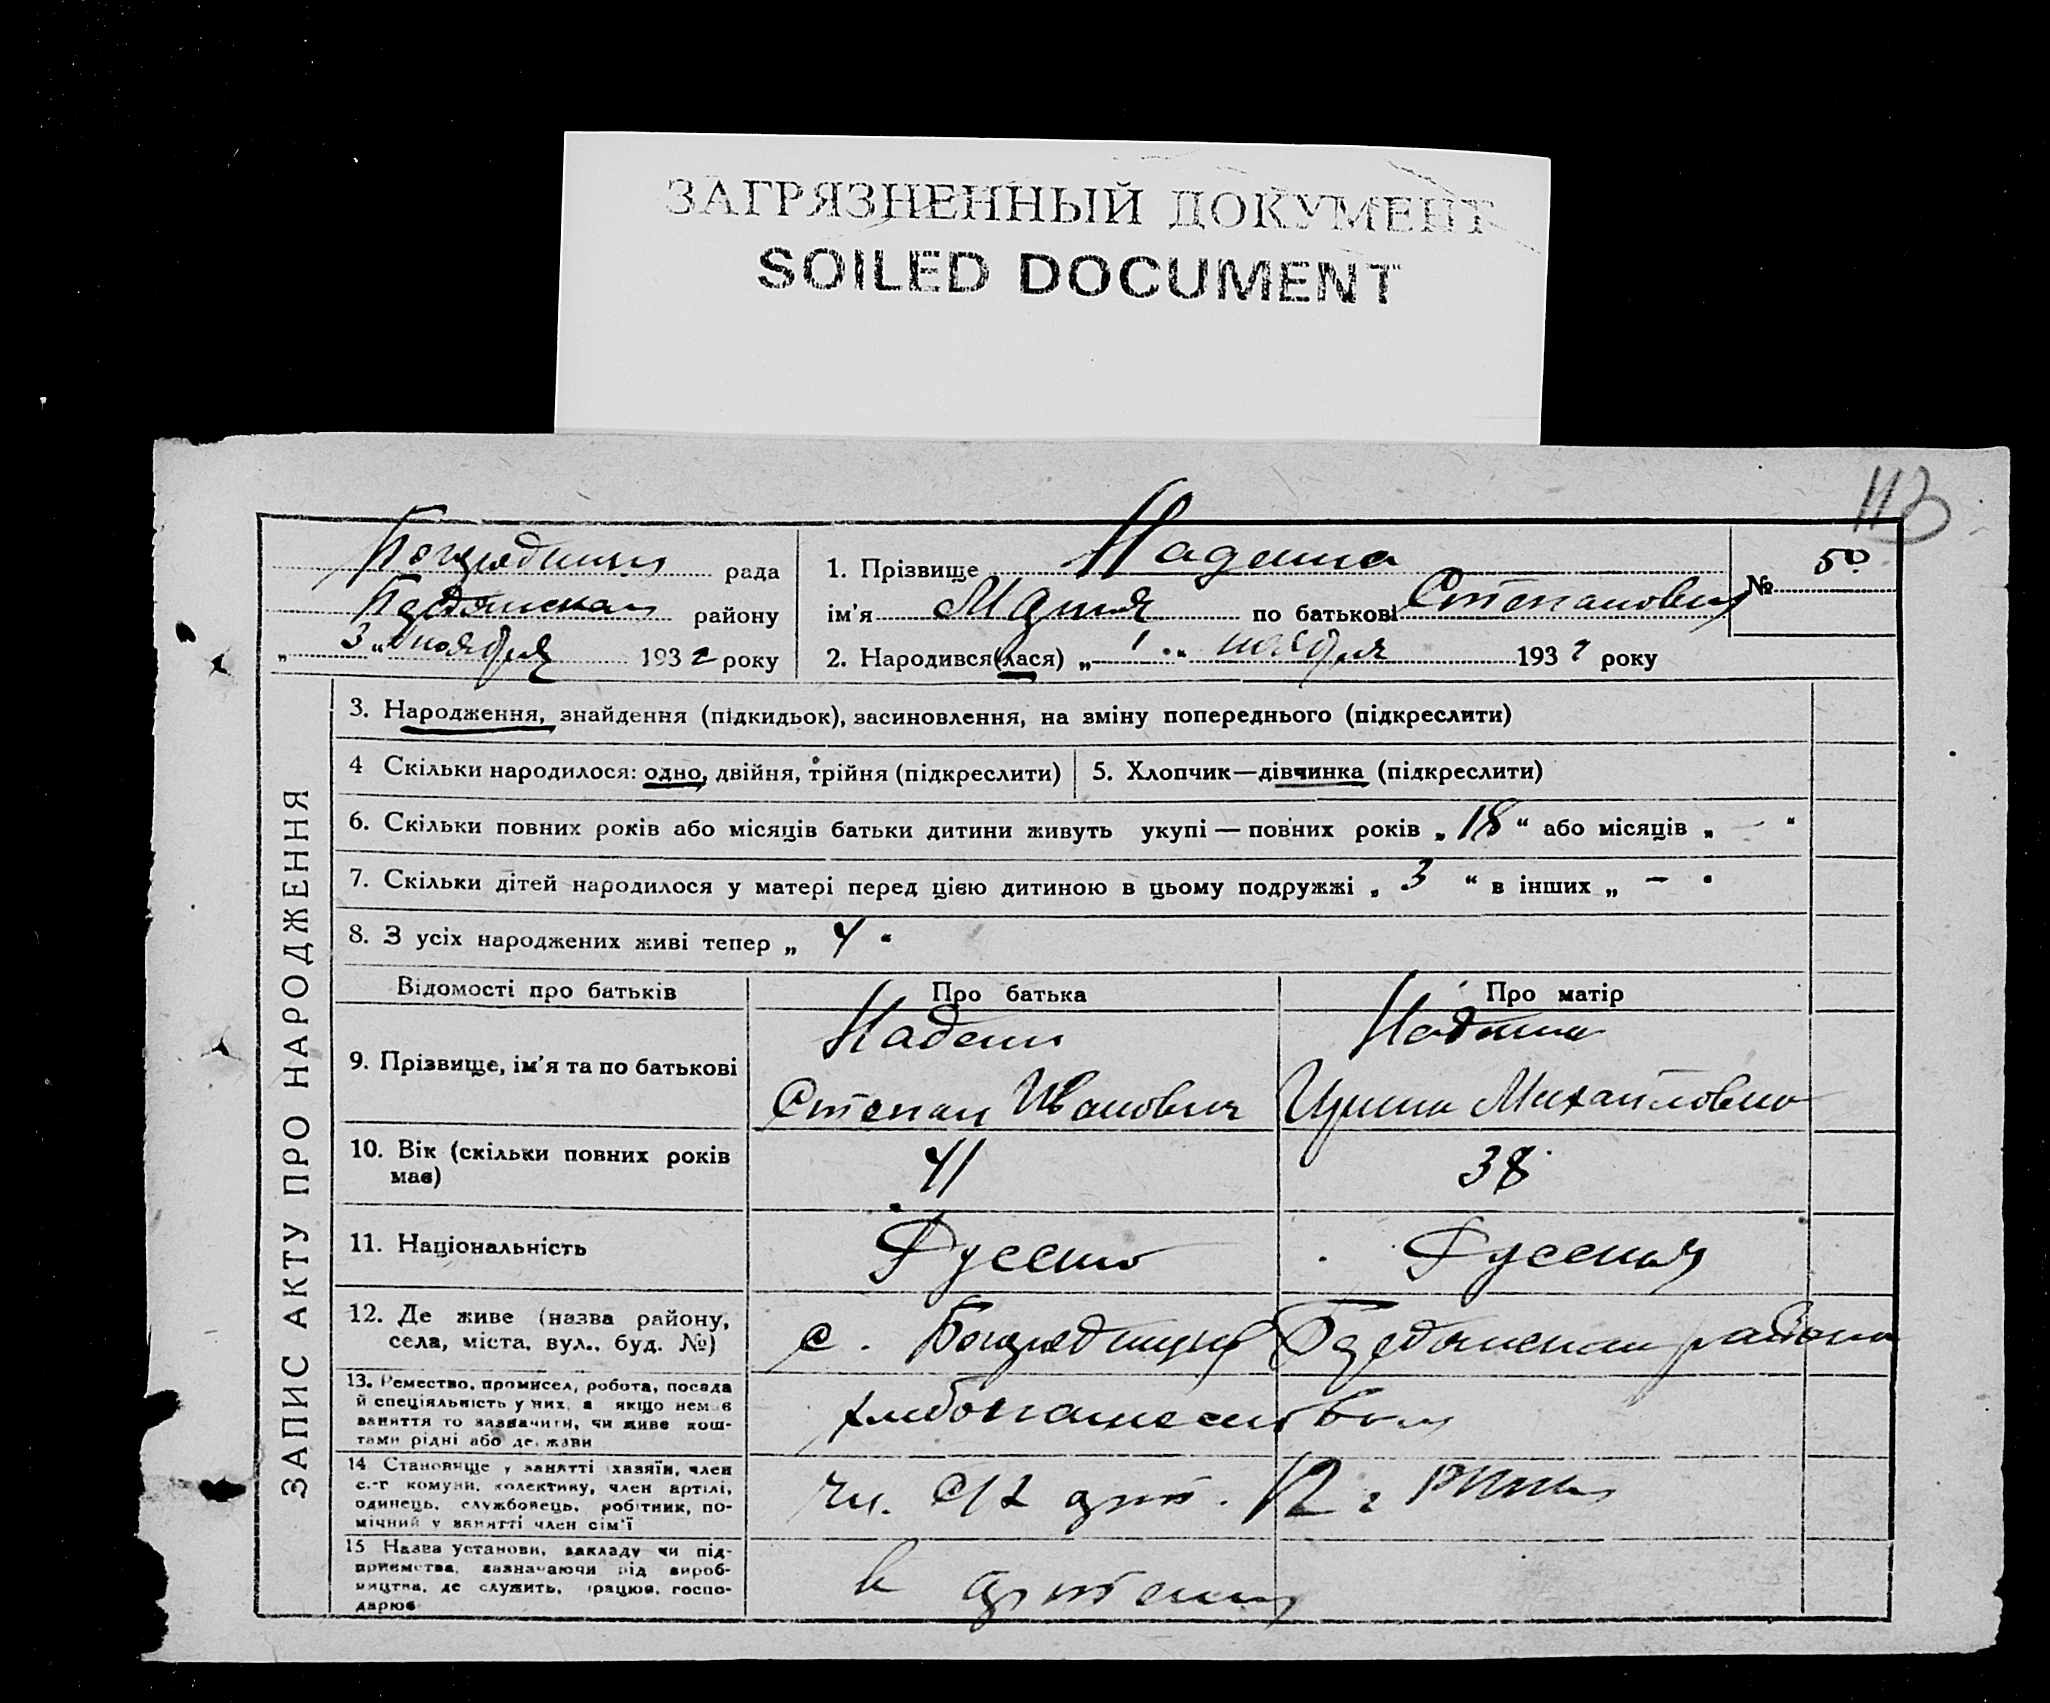 ЗАГРЯЗНЕННЫЙ ДОКУМЕНТ
SOILED DOCUMENT
113
рада
району
„ 3 “ ноября 1932 року
1. Прізвище Надеина
ім'я Мария по батькові Степановна
№ 50
2. Народився(лася) „ 1 “ ноября 1932 року
ЗАПИС АКТУ ПРО НАРОДЖЕННЯ
3. Народження, знайдення (підкидьок), засиновлення, на зміну попереднього (підкреслити)
4 Скільки народилося: одно, двійня, трійня (підкреслити)
5. Хлопчик—дівчинка (підкреслити)
6. Скільки повних років або місяців батьки дитини живуть укупі — повних років „ 18 “ або місяців „ — “
7. Скільки дітей народилося у матері перед цією дитиною в цьому подружжі „ 3 “ в інших „ — “
8. З усіх народжених живі тепер „ 4 “
Відомості про батьків
Про батька
Про матір
9. Прізвище, ім'я та по батькові
Надеин
Степан Иванович
Надеина
Ирина Михайловна
10. Вік (скільки повних років
має)
41
38
11. Національність
Русский
Русская
12. Де живе (назва району,
села, міста, вул., буд. №)
с. района
13. Ремество, промисел, робота, посада
й спеціяльність у них, а якщо немає
заняття то зазначити, чи живе кош-
тами рідні або держави
хлебопашеством
14 Становище у занятті хазяїн, член
с.-г комуни, колективу, член артілі,
одинець, службовець, робітник, по-
мічний у занятті член сім'ї
чл. с/х арт.
15 Назва установи, закладу чи під-
приємства, зазначаючи рід вироб-
ництва, де служить, працює, госпо-
дарює
в артели